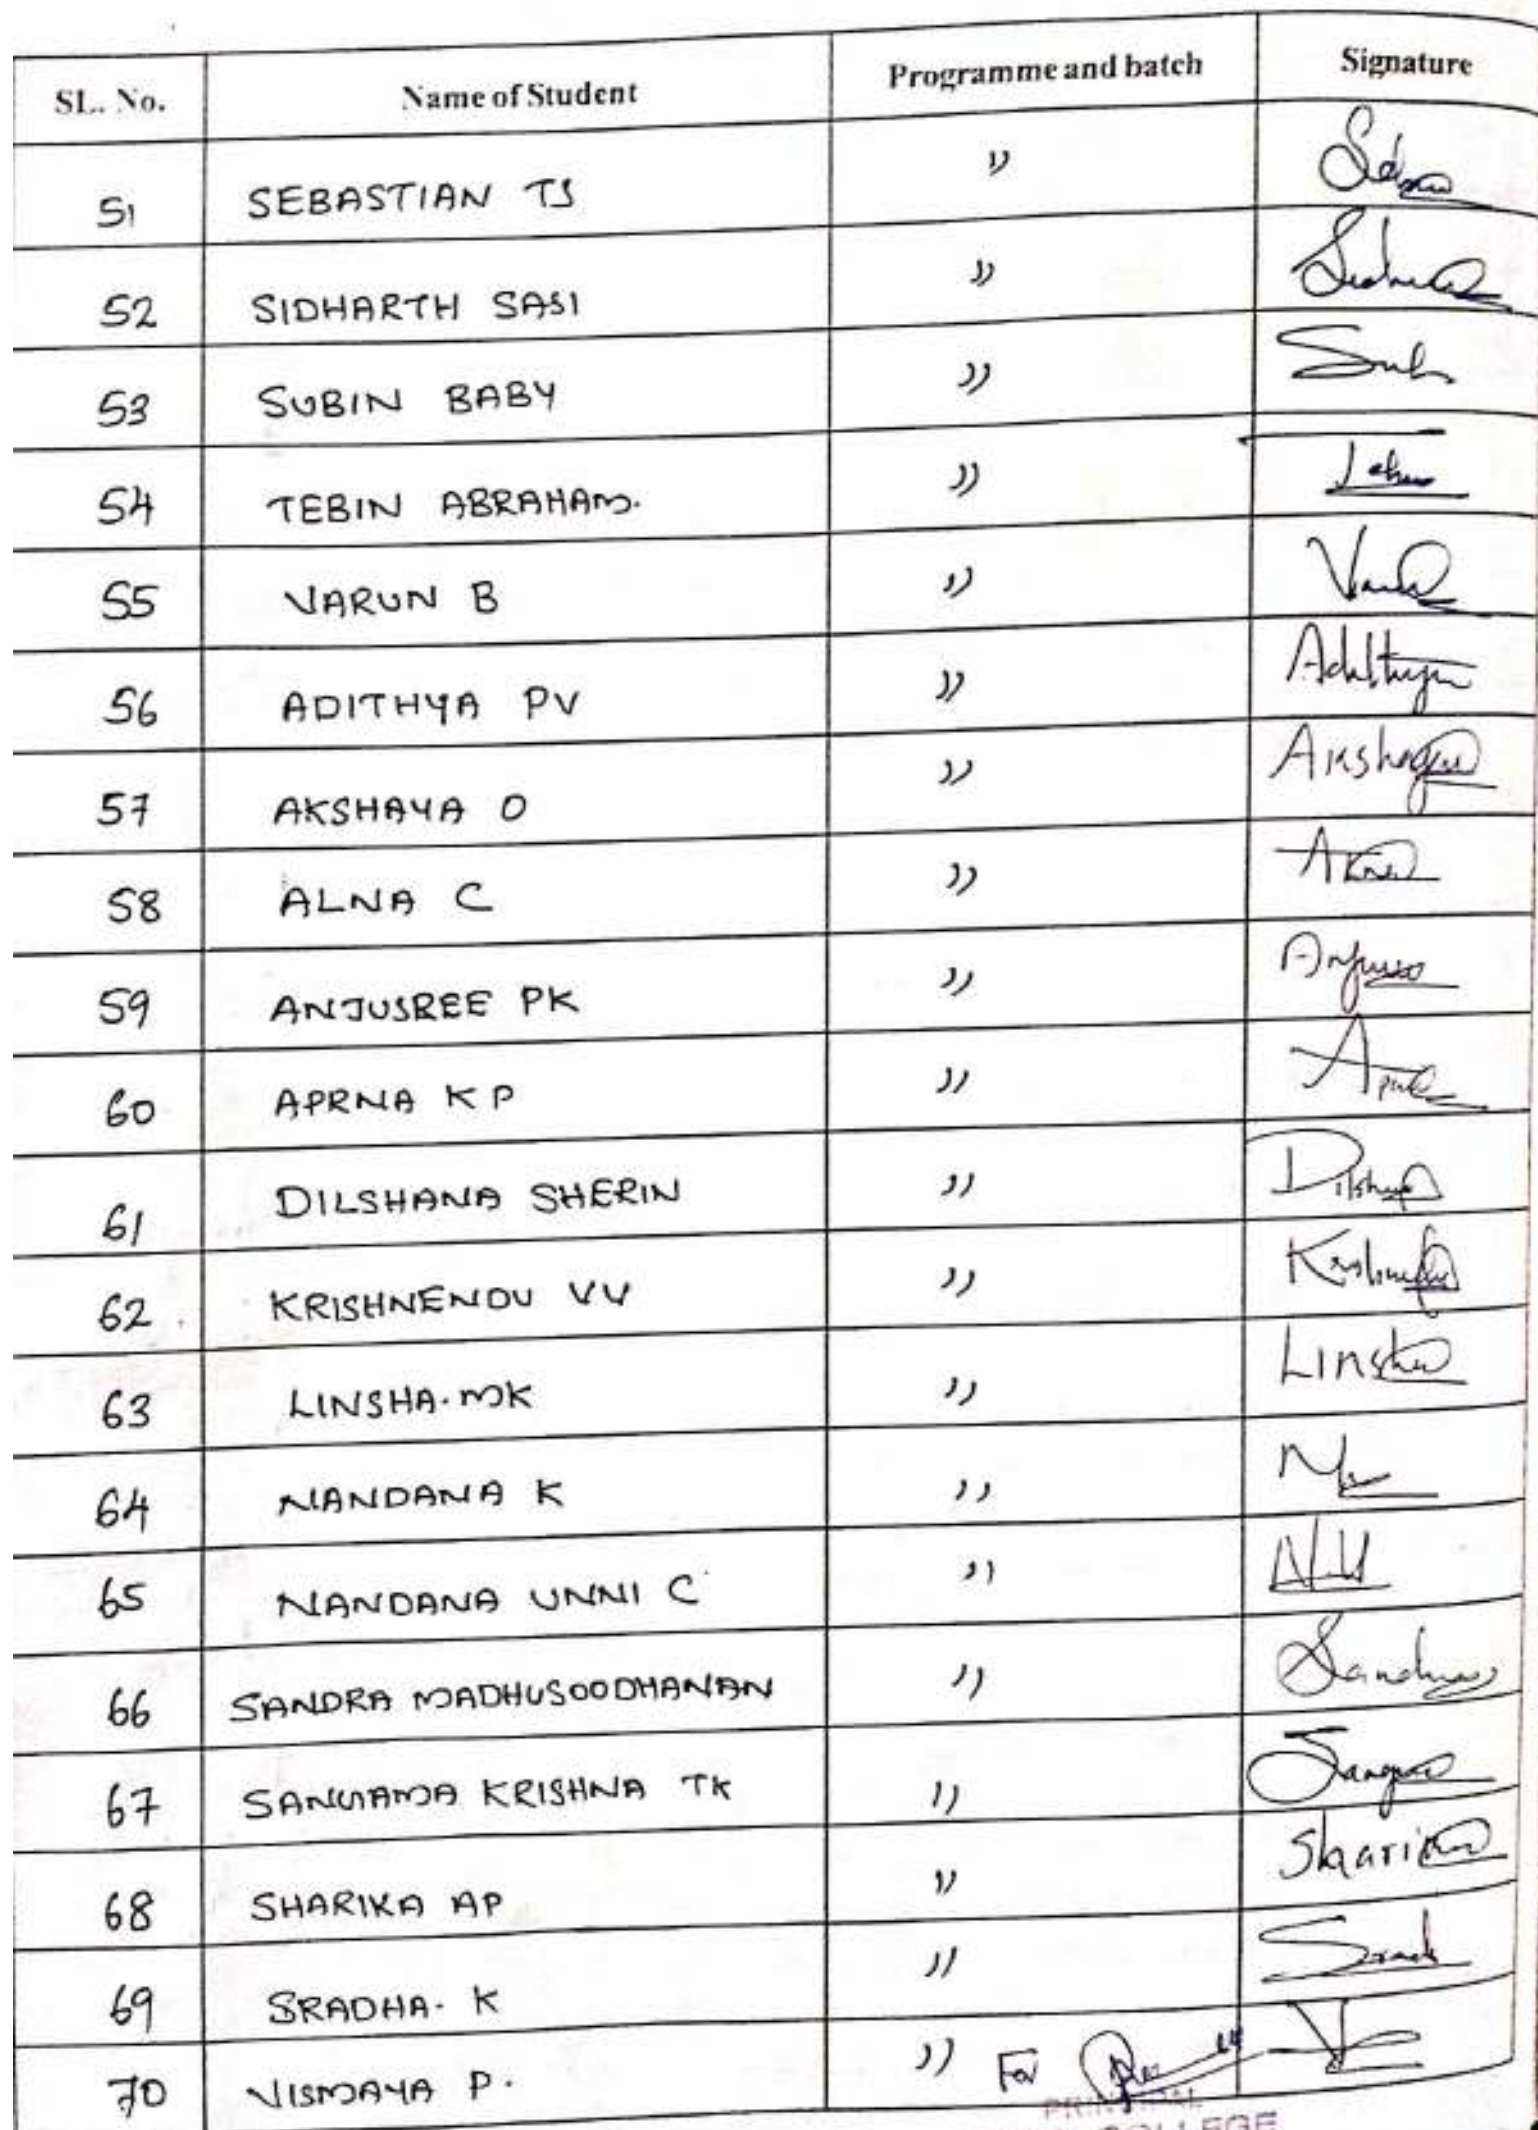 SL. No. Name of Student Programme and batch Signature
51 SEBASTIAN TJ ,,
52 SIDHARTH SASI ,,
53 SUBIN BABY ,,
54 TEBIN ABRAHAM. ,,
55 VARUN B ,,
56 ADITHYA PV ,, Adithya
57 AKSHAYA O ,, Akshaya
58 ALNA C ,,
59 ANJUSREE PK ,,
60 APRNA K P ,,
61 DILSHANA SHERIN ,,
62 KRISHNENDU VV ,,
63 LINSHA. MK ,, Linsha
64 NANDANA K ,,
65 NANDANA UNNI C ,,
66 SANDRA MADHUSOODHANAN ,,
67 SANGAMA KRISHNA TK ,,
68 SHARIKA AP ,, Sharika
69 SRADHA. K ,,
70 VISMAYA P. ,, For
PRINCIPAL
COLLEGE